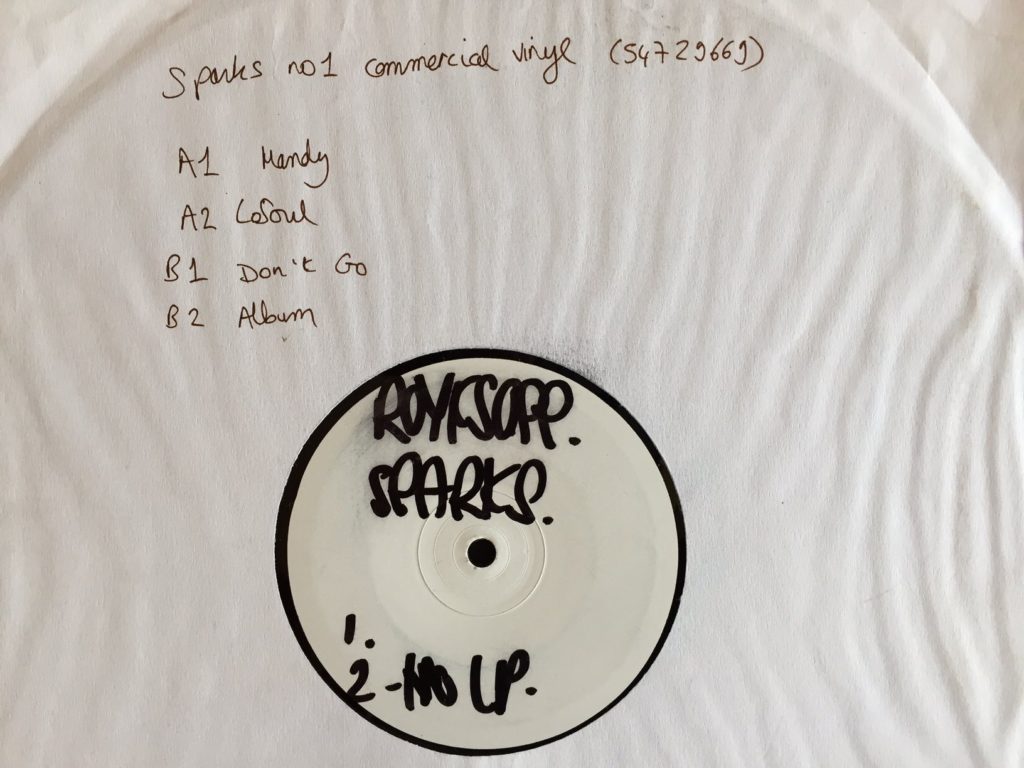 Sparks no1 commercial vinyl (54729669)
A1 Mandy
A2 LoSoul
B1 Don't Go
B2 Album
ROYKSOPP.
SPARKS.
1.
2 - NO LP.